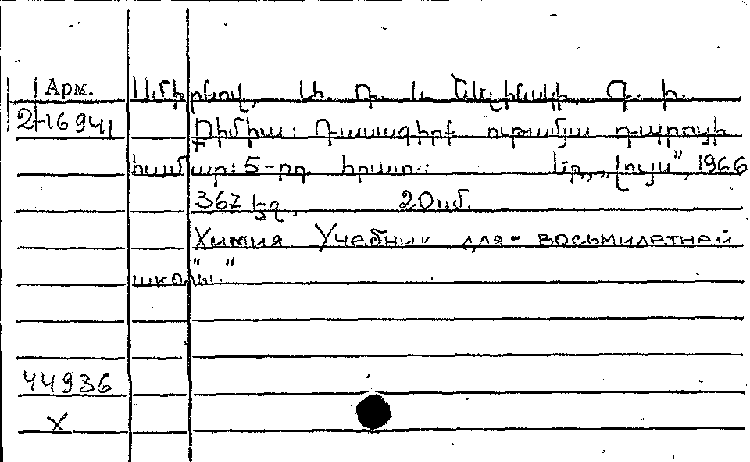 Арм.
Սմիրնով, Ա. Դ. և Շելինսկի Գ. Ի.
2-16941
Քիմիա: Դասագիրք ութամյա դպրոցի
համար: 5-րդ հրատ.: Եր., „Լույս", 1966
367 էջ, 20սմ.
Химия Учебник для восьмилетней
школы."
44936
X